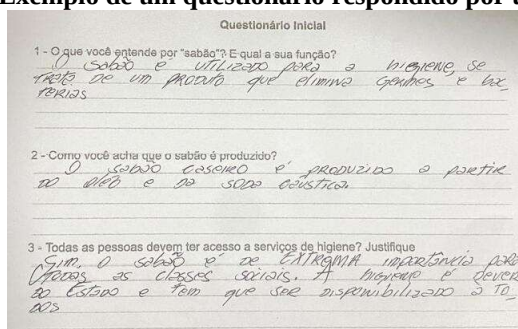 Exemplo de um questionário respondido por
Questionário Inicial
1 - O que você entende por "sabão"? E qual a sua função?
O sabão é utilizado para a higiene, se
trata de um produto que elimina germes e bac_
terias
2 - Como você acha que o sabão é produzido?
O sabão caseiro é produzido a partir
do óleo e da soda cáustica.
3 - Todas as pessoas devem ter acesso a serviços de higiene? Justifique
Sim, o sabão é de EXTREMA importância para
todas as classes sociais. A higiene é dever
do Estado e tem que ser disponibilizado a to_
dos